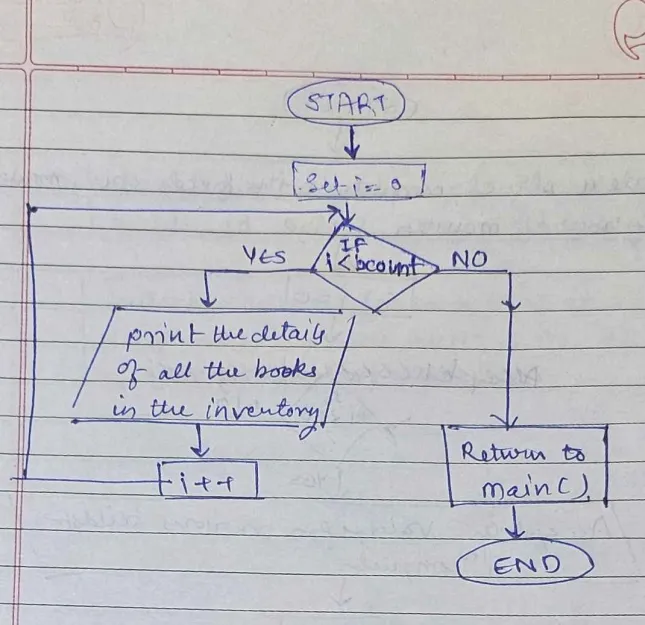 START
Set i = 0
IF
i < bcount
YES
NO
print the details
of all the books
in the inventory
i++
Return to
main()
END